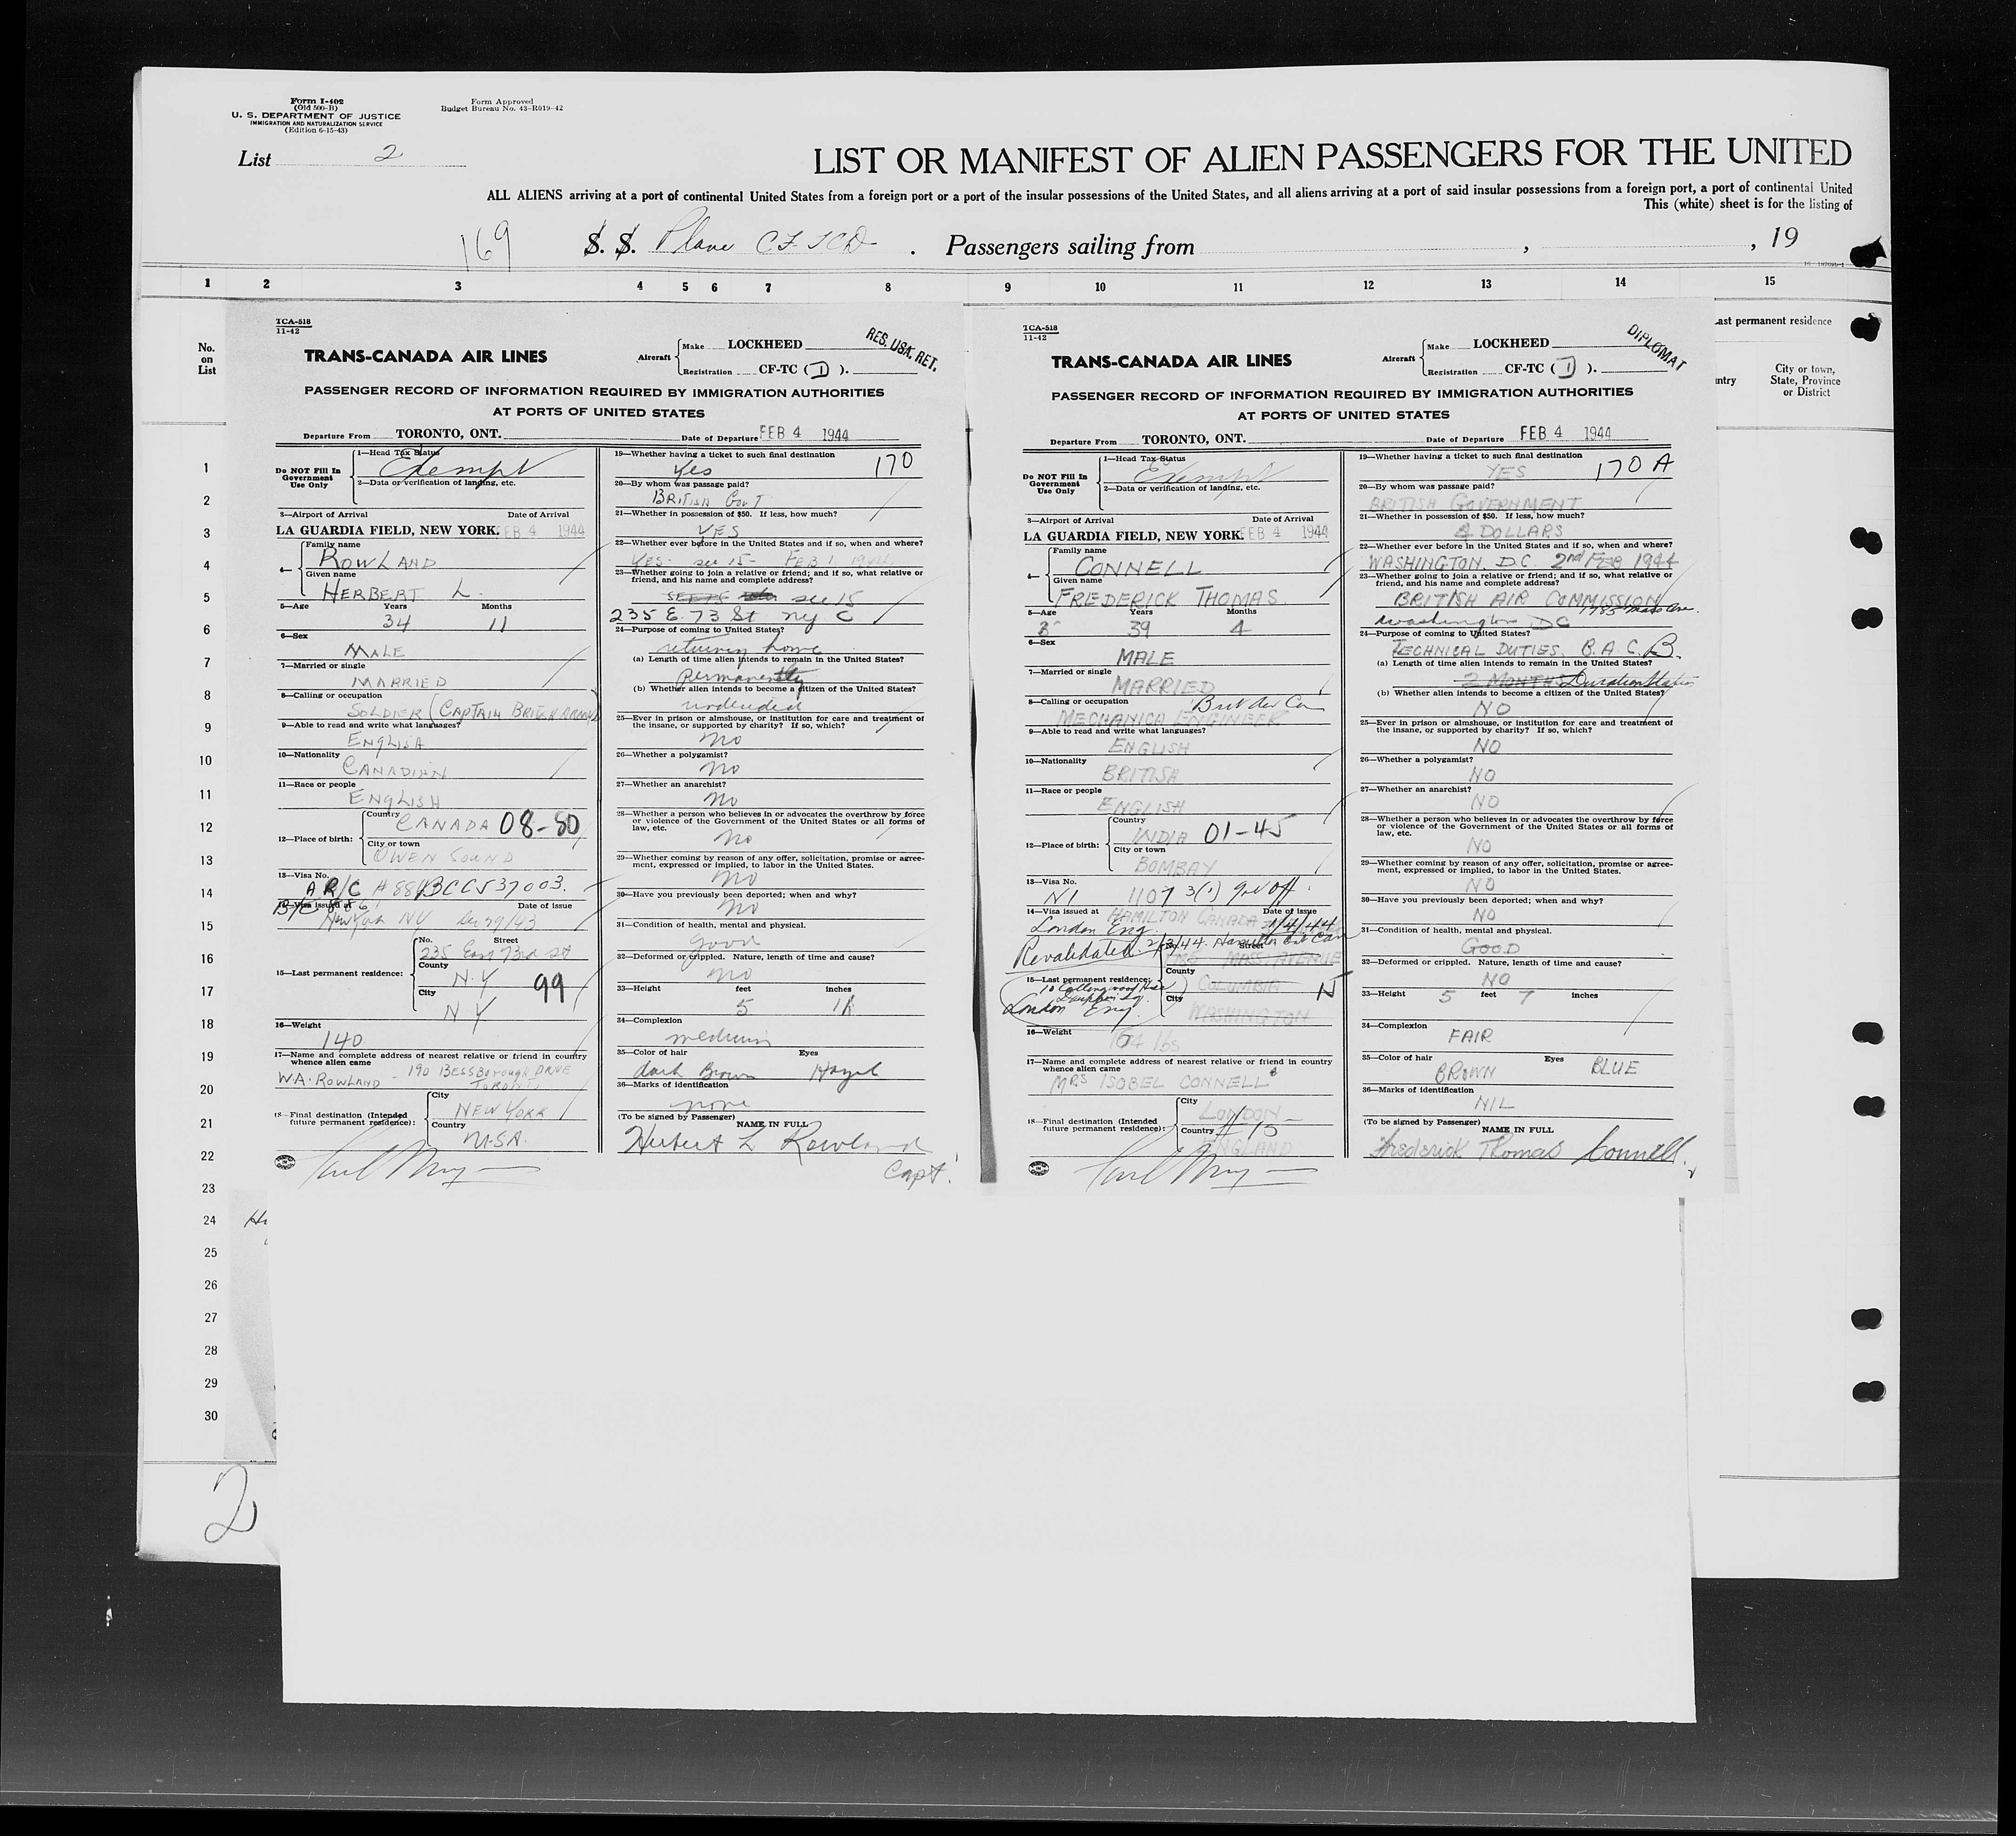 Form I-402
(Old 500-B)
U. S. DEPARTMENT OF JUSTICE
IMMIGRATION AND NATURALIZATION SERVICE
(Edition 6-15-43)
Form Approved
Budget Bureau No. 43-R019-42
List 2
LIST OR MANIFEST OF ALIEN PASSENGERS FOR THE UNITED
ALL ALIENS arriving at a port of continental United States from a foreign port or a port of the insular possessions of the United States, and all aliens arriving at a port of said insular possessions from a foreign port, a port of continental United
This (white) sheet is for the listing of
169 S. S. Plane CF-TCD . Passengers sailing from , , 19
1 2 3 4 5 6 7 8 9 10 11 12 13 14 15
No.
on
List
Last permanent residence
ntry
City or town,
State, Province
or District
1
2
3
4
5
6
7
8
9
10
11
12
13
14
15
16
17
18
19
20
21
22
23
24
25
26
27
28
29
30
2
TCA-518
11-42
TRANS-CANADA AIR LINES
Aircraft
Make LOCKHEED
Registration CF-TC ( D ).
RES. USA. RET.
PASSENGER RECORD OF INFORMATION REQUIRED BY IMMIGRATION AUTHORITIES
AT PORTS OF UNITED STATES
Departure From TORONTO, ONT. Date of Departure FEB 4 1944
Do NOT Fill In
Government
Use Only
1—Head Tax Status
Exempt
2—Data or verification of landing, etc.
3—Airport of Arrival Date of Arrival
LA GUARDIA FIELD, NEW YORK. FEB 4 1944
4—
Family name
ROWLAND
Given name
HERBERT L.
5—Age Years Months
34 11
6—Sex
MALE
7—Married or single
MARRIED
8—Calling or occupation
SOLDIER (CAPTAIN BRITISH ARMY)
9—Able to read and write what languages?
ENGLISH
10—Nationality
CANADIAN
11—Race or people
ENGLISH
12—Place of birth:
Country
CANADA 08-80
City or town
OWEN SOUND
13—Visa No.
A R/C BCC537003.
14—Visa issued at Date of issue
New York NY Dec 29/43
15—Last permanent residence:
No. Street
235 East 73rd St
County
N.Y 99
City
N Y
16—Weight
140
17—Name and complete address of nearest relative or friend in country
whence alien came
W.A. ROWLAND - 190 BESSBOROUGH DRIVE
TORONTO
18—Final destination (Intended
future permanent residence):
City
NEW YORK
Country
U.S.A.
19—Whether having a ticket to such final destination
Yes 170
20—By whom was passage paid?
BRITISH GOVT
21—Whether in possession of $50. If less, how much?
YES
22—Whether ever before in the United States and if so, when and where?
YES - see 15 - FEB 1 1944
23—Whether going to join a relative or friend; and if so, what relative or
friend, and his name and complete address?
see 15
235 E. 73 St NY C
24—Purpose of coming to United States?
returning home
(a) Length of time alien intends to remain in the United States?
Permanently
(b) Whether alien intends to become a citizen of the United States?
undecided
25—Ever in prison or almshouse, or institution for care and treatment of
the insane, or supported by charity? If so, which?
no
26—Whether a polygamist?
no
27—Whether an anarchist?
no
28—Whether a person who believes in or advocates the overthrow by force
or violence of the Government of the United States or all forms of
law, etc.
no
29—Whether coming by reason of any offer, solicitation, promise or agree-
ment, expressed or implied, to labor in the United States.
no
30—Have you previously been deported; when and why?
no
31—Condition of health, mental and physical.
good
32—Deformed or crippled. Nature, length of time and cause?
no
33—Height feet inches
5 11
34—Complexion
medium
35—Color of hair Eyes
dark Brown Hazel
36—Marks of identification
none
(To be signed by Passenger)
NAME IN FULL
Herbert L Rowland
Capt.
TCA-518
11-42
TRANS-CANADA AIR LINES
Aircraft
Make LOCKHEED
Registration CF-TC ( D ).
DIPLOMAT
PASSENGER RECORD OF INFORMATION REQUIRED BY IMMIGRATION AUTHORITIES
AT PORTS OF UNITED STATES
Departure From TORONTO, ONT. Date of Departure FEB 4 1944
Do NOT Fill In
Government
Use Only
1—Head Tax Status
Exempt
2—Data or verification of landing, etc.
3—Airport of Arrival Date of Arrival
LA GUARDIA FIELD, NEW YORK. FEB 4 1944
4—
Family name
CONNELL
Given name
FREDERICK THOMAS
5—Age Years Months
39 4
6—Sex
MALE
7—Married or single
MARRIED
8—Calling or occupation
MECHANICAL ENGINEER
9—Able to read and write what languages?
ENGLISH
10—Nationality
BRITISH
11—Race or people
ENGLISH
12—Place of birth:
Country
INDIA 01-45
City or town
BOMBAY
13—Visa No.
1107 3(1) Gov Off.
14—Visa issued at HAMILTON CANADA Date of issue
London Eng.
Revalidated 2/3/44. Hamilton Ont Can
Street
MASS. AVENUE
15—Last permanent residence:
County
COLUMBIA
City
WASHINGTON
London Eng.
16—Weight
164 lbs
17—Name and complete address of nearest relative or friend in country
whence alien came
MRS ISOBEL CONNELL
18—Final destination (Intended
future permanent residence):
City
LONDON
Country
ENGLAND
19—Whether having a ticket to such final destination
YES 170 A
20—By whom was passage paid?
BRITISH GOVERNMENT
21—Whether in possession of $50. If less, how much?
DOLLARS
22—Whether ever before in the United States and if so, when and where?
WASHINGTON. D.C. 2nd FEB 1944
23—Whether going to join a relative or friend; and if so, what relative or
friend, and his name and complete address?
BRITISH AIR COMMISSION
1785 Mass Ave.
Washington DC
24—Purpose of coming to United States?
TECHNICAL DUTIES. B.A.C.
(a) Length of time alien intends to remain in the United States?
2 MONTHS Duration Status
(b) Whether alien intends to become a citizen of the United States?
NO
25—Ever in prison or almshouse, or institution for care and treatment of
the insane, or supported by charity? If so, which?
NO
26—Whether a polygamist?
NO
27—Whether an anarchist?
NO
28—Whether a person who believes in or advocates the overthrow by force
or violence of the Government of the United States or all forms of
law, etc.
NO
29—Whether coming by reason of any offer, solicitation, promise or agree-
ment, expressed or implied, to labor in the United States.
NO
30—Have you previously been deported; when and why?
NO
31—Condition of health, mental and physical.
GOOD
32—Deformed or crippled. Nature, length of time and cause?
NO
33—Height 5 feet 7 inches
34—Complexion
FAIR
35—Color of hair Eyes
BROWN BLUE
36—Marks of identification
NIL
(To be signed by Passenger)
NAME IN FULL
Frederick Thomas Connell.